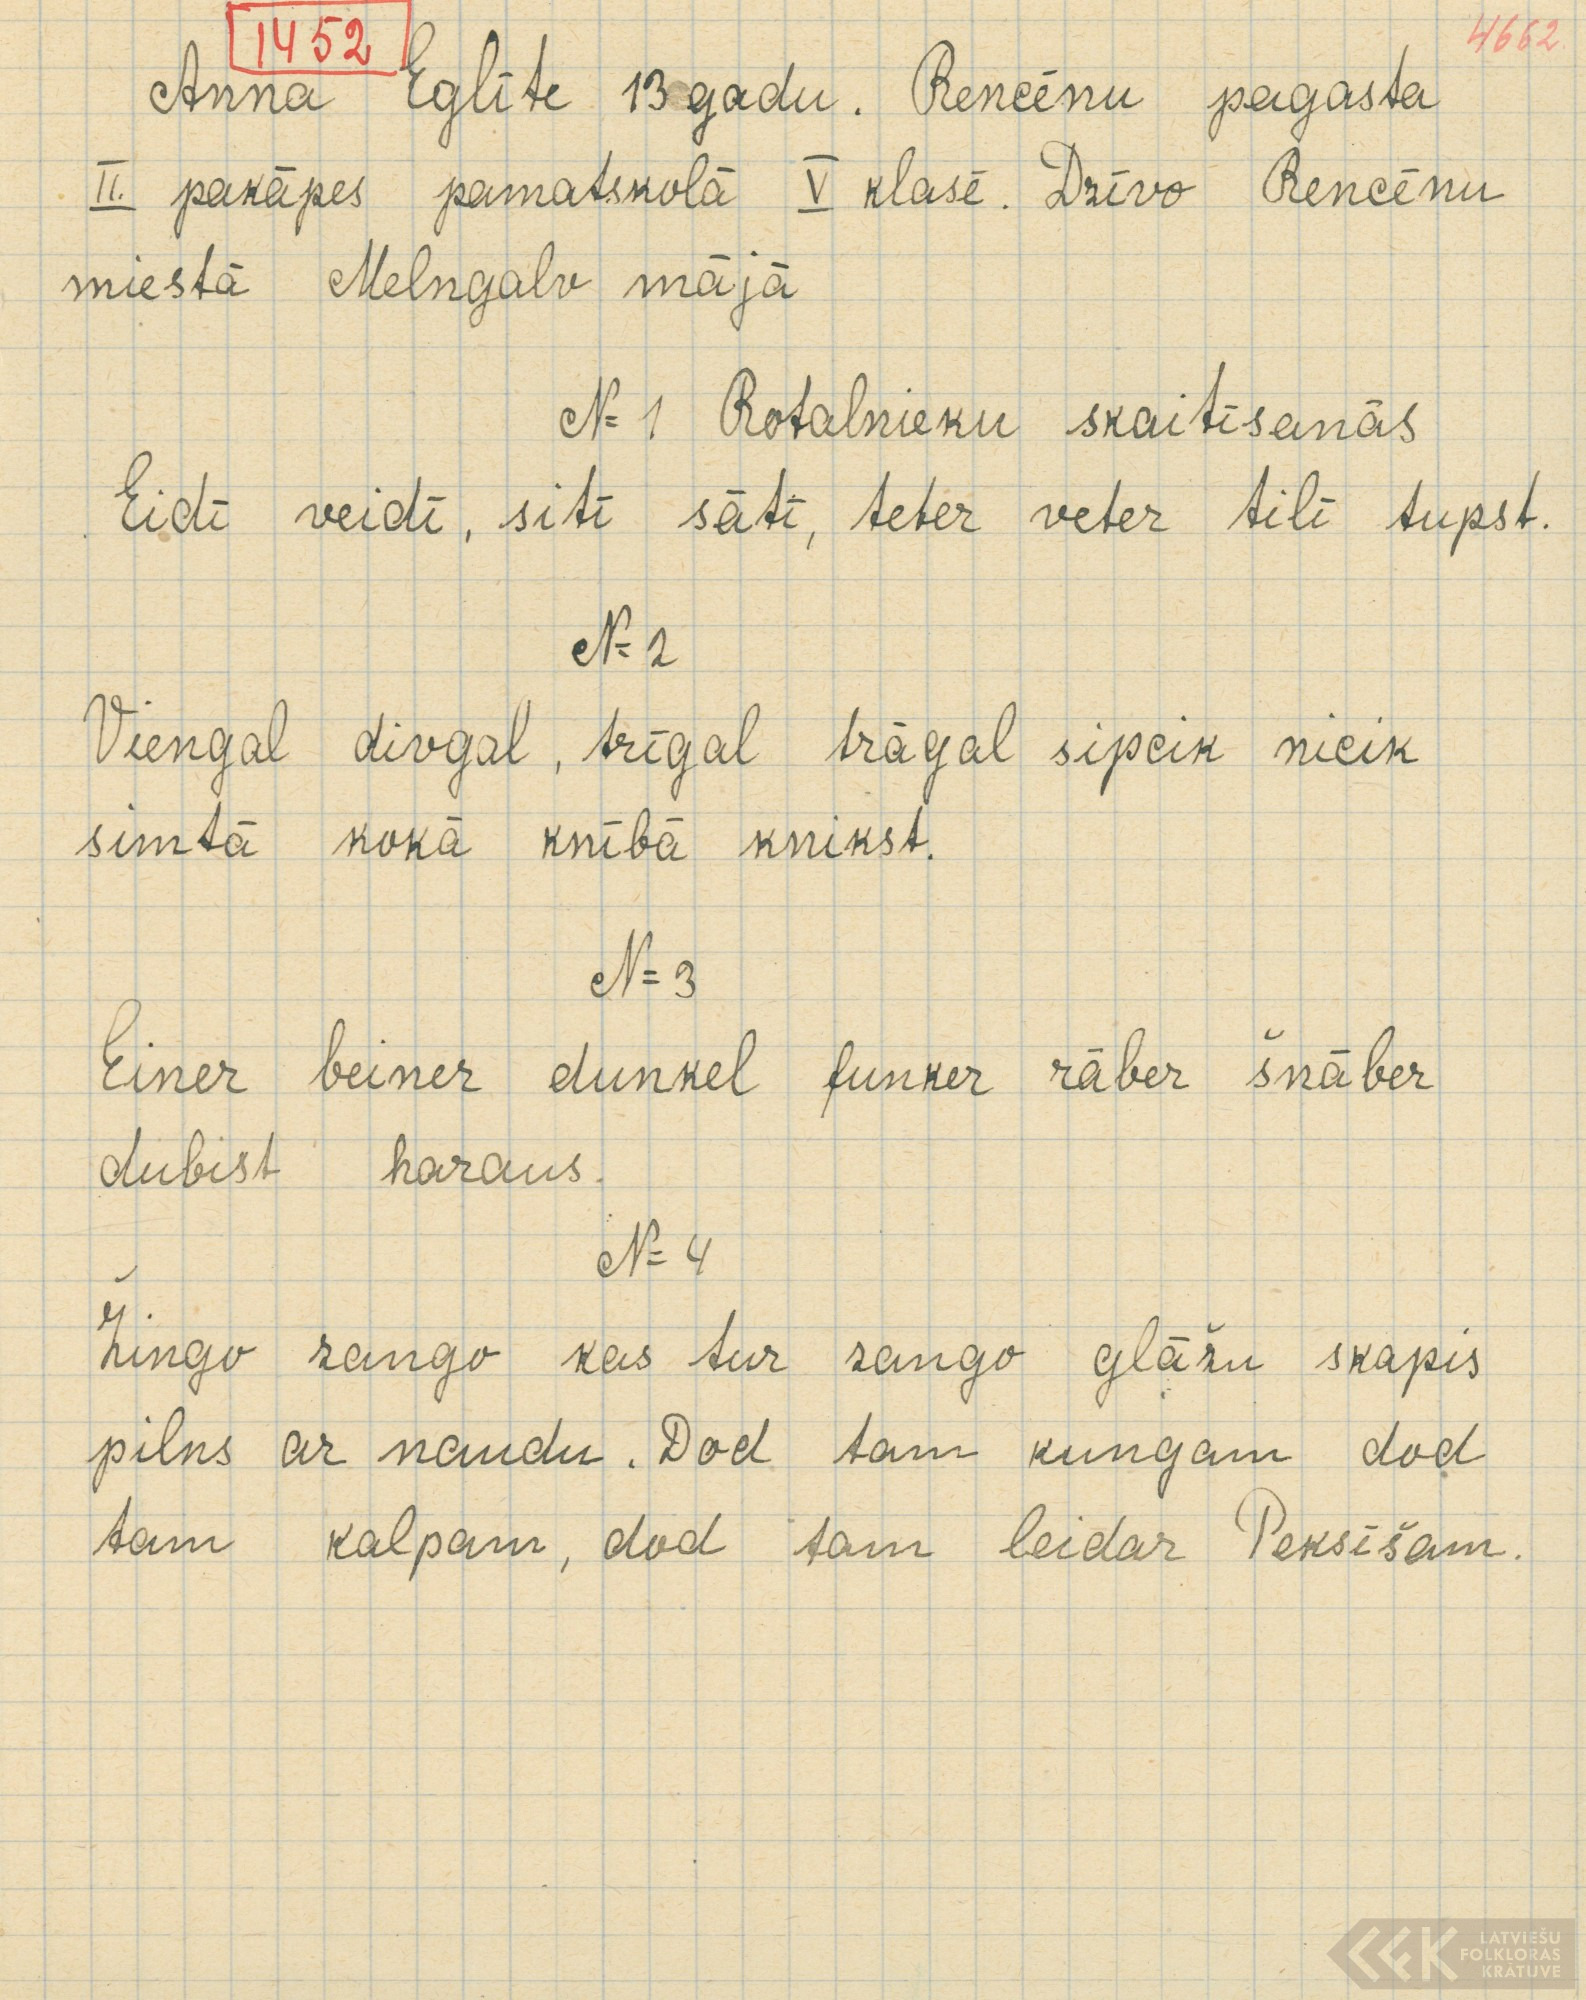 1452
4662.
Anna Eglīte 13 gadu. Rencēnu pagasta
II. pakāpes pamatskolā V klasē. Dzīvo Rencēnu
miestā Melngalv mājā
№ 1 Rotalnieku skaitīsanās
Eidī veidī, sitī sātī, teter veter tilī tupst.
№ 2
Viengal divgal, trīgal trāgal sipcik nicik
simtā kokā knībā knikst.
№ 3
Einer beiner dunkel funker rāber šnāber
dubist haraus.
№ 4
Žingo zango kas tur zango glāžu skapis
pilns ar naudu. Dod tam kungam dod
tam kalpam, dod tam leidar Peksīšam.
LATVIEŠU
FOLKLORAS
KRĀTUVE